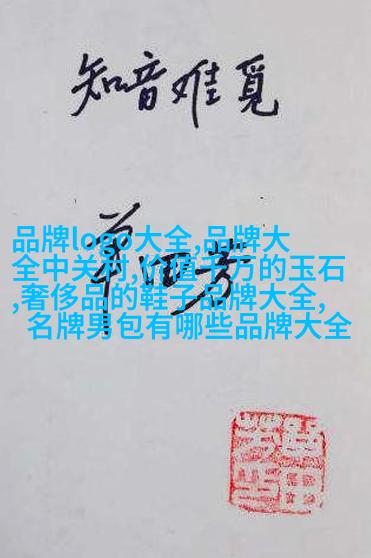 知音难觅
单田芳
品牌logo大全,品牌大
全中关村,价值千万的玉石
,奢侈品的鞋子品牌大全,
名牌男包有哪些品牌大全